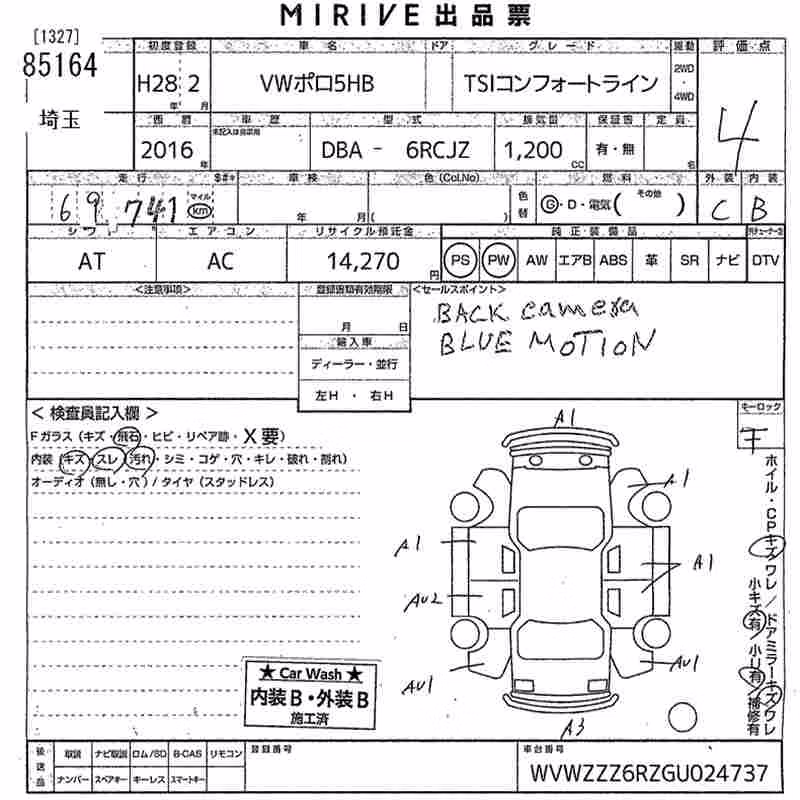 MIRIVE 出品票
[1327]
85164
埼玉
初度登録 車名 ドア グレード 駆動 評価点
H28 2 年 月 VWポロ5HB TSIコンフォートライン 2WD・4WD 4
西暦 車歴 型式 排気量 保証書 定員
2016 年 未記入は自家用 DBA - 6RCJZ 1,200 CC 有・無 名
走行 車検 色(Col.No) 燃料 外装 内装
69,741 マイル km 年 月 ( ) 色替 G・D・電気( その他 ) C B
シフト エアコン リサイクル預託金 純正装備品
AT AC 14,270 円 PS PW AW エアB ABS 革 SR ナビ DTV
<注意事項> 登録書類有効期限 <セールスポイント>
月 日 BACK camera
輸入車 BLUE MOTION
ディーラー・並行
左H・右H
< 検査員記入欄 > キーロック
Fガラス (キズ・飛石・ヒビ・リペア跡・X要)
内装 (キズ・スレ・汚れ・シミ・コゲ・穴・キレ・破れ・割れ)
オーディオ (無し・穴) / タイヤ (スタッドレス)
A1
A1
A1 A1
AU2
AU1 AU1
A3
ホイル・CPキズワレ/ドアミラーキズワレ
小キズ有/小リ有/補修有
★ Car Wash ★
内装B・外装B
施工済
後送品 取説 ナビ取説 ロム/SD B-CAS リモコン 登録番号 車台番号
ナンバー スペアキー キーレス スマートキー VWVZZZ6RZGU024737